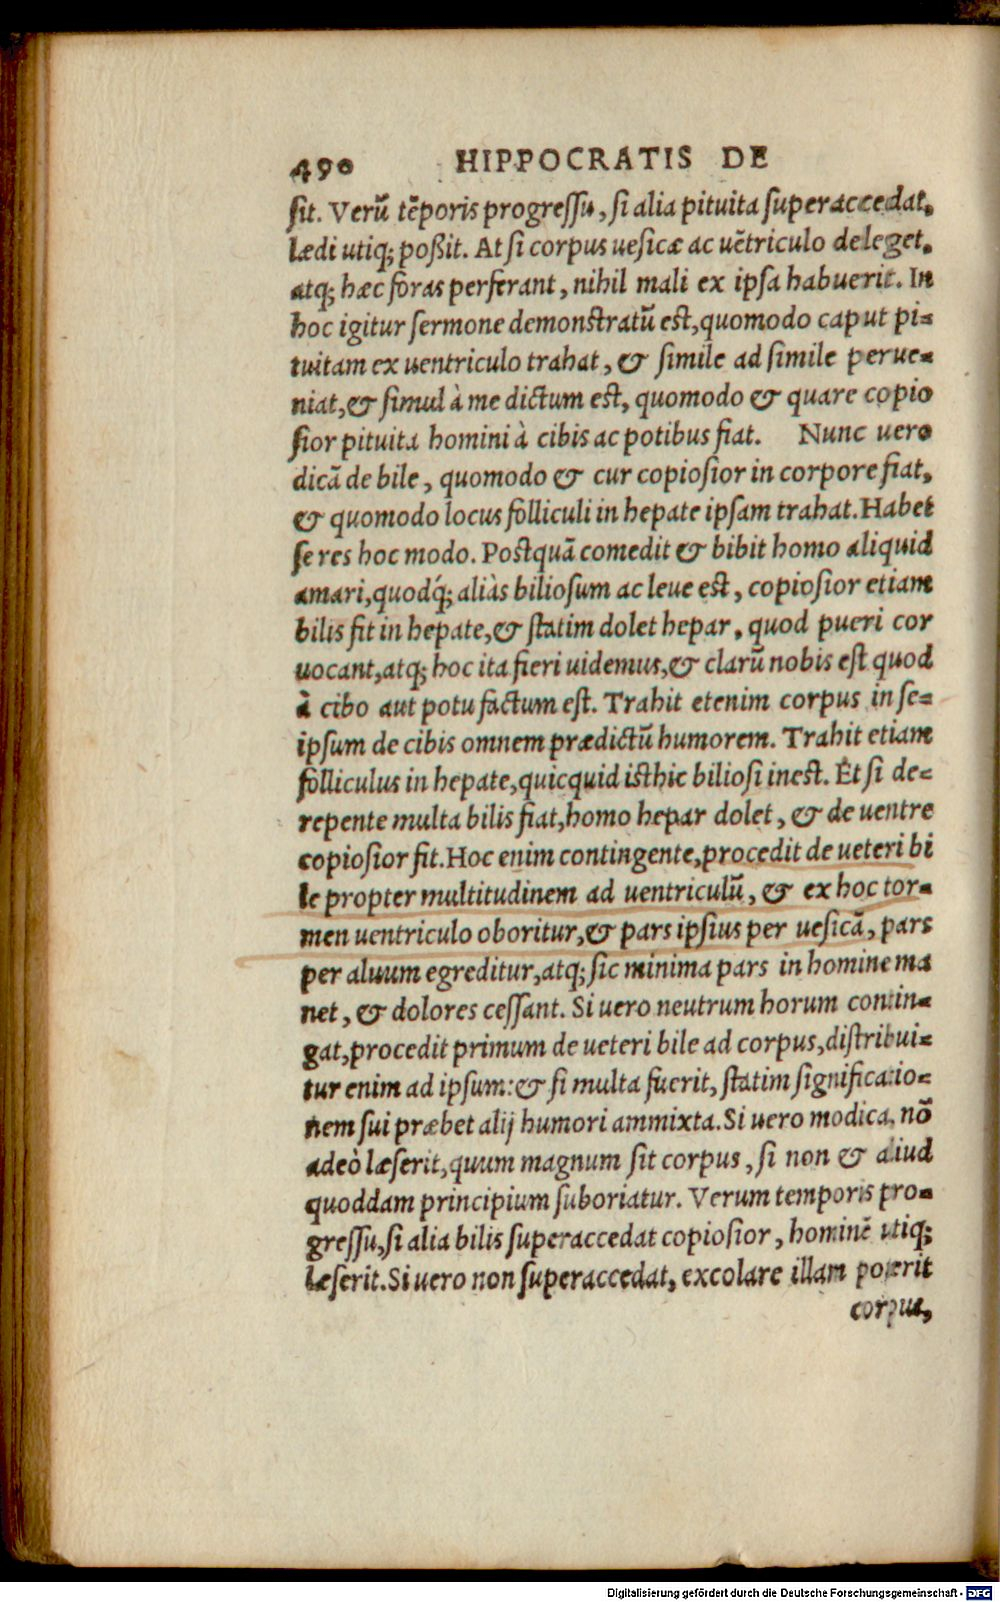 490 HIPPOCRATIS DE
sit. Verũ tẽporis progressu, si alia pituita superaccedat,
lædi utiq; poßit. At si corpus uesicæ ac uẽtriculo deleget,
atq; hæc foras perferant, nihil mali ex ipsa habuerit. In
hoc igitur sermone demonstratũ est, quomodo caput pi=
tuitam ex uentriculo trahat, & simile ad simile perue=
niat, & simul à me dictum est, quomodo & quare copio
sior pituita homini à cibis ac potibus fiat. Nunc uero
dicã de bile, quomodo & cur copiosior in corpore fiat,
& quomodo locus folliculi in hepate ipsam trahat. Habet
se res hoc modo. Postquã comedit & bibit homo aliquid
amari, quodq́; aliàs biliosum ac leue est, copiosior etiam
bilis fit in hepate, & statim dolet hepar, quod pueri cor
uocant, atq; hoc ita fieri uidemus, & clarũ nobis est quod
à cibo aut potu factum est. Trahit etenim corpus in se=
ipsum de cibis omnem prædictũ humorem. Trahit etiam
folliculus in hepate, quicquid isthic biliosi inest. Et si de=
repente multa bilis fiat, homo hepar dolet, & de uentre
copiosior fit. Hoc enim contingente, procedit de ueteri bi
le propter multitudinem ad uentriculũ, & ex hoc tor=
men uentriculo oboritur, & pars ipsius per uesicã, pars
per aluum egreditur, atq; sic minima pars in homine ma
net, & dolores cessant. Si uero neutrum horum contin=
gat, procedit primum de ueteri bile ad corpus, distribui=
tur enim ad ipsum: & si multa fuerit, statim significatio=
nem sui præbet alij humori ammixta. Si uero modica, nõ
adeò læserit, quum magnum sit corpus, si non & aliud
quoddam principium suboriatur. Verum temporis pro=
gressu, si alia bilis superaccedat copiosior, hominẽ utiq;
læserit. Si uero non superaccedat, excolare illam poterit
corpus,
Digitalisierung gefördert durch die Deutsche Forschungsgemeinschaft - DFG